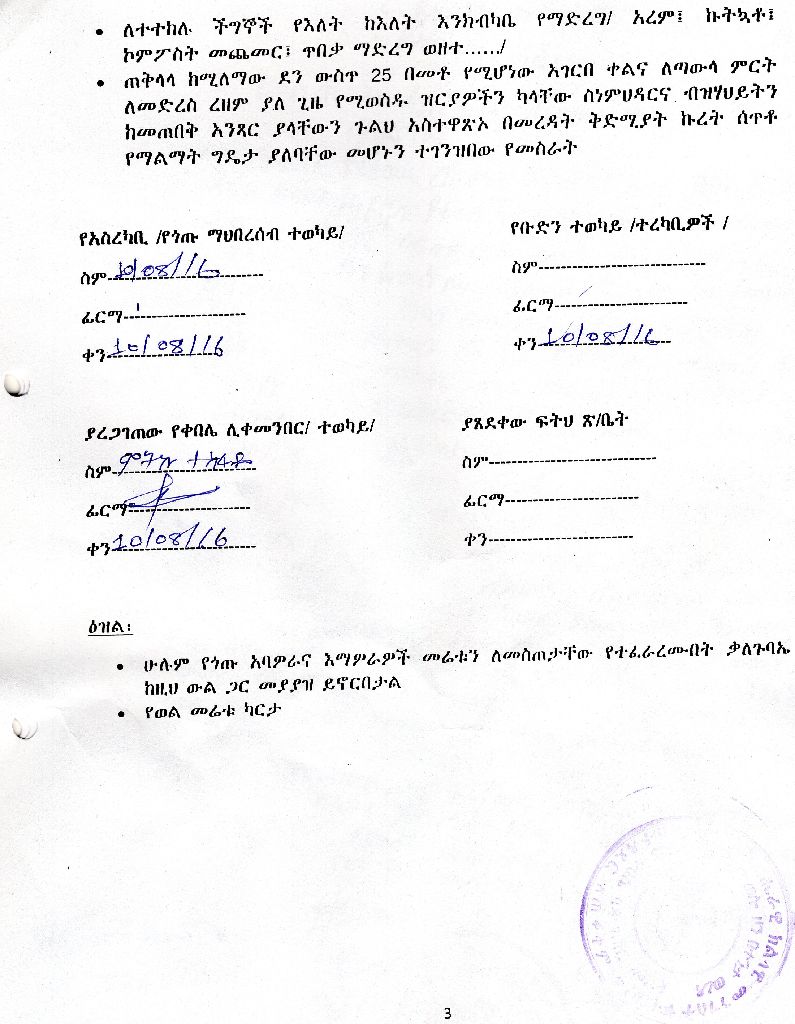 • ለተተከሉ ችግኞች የእለት ከእለት እንክብካቤ የማድረግ/ አረም፤ ኩትኳቶ፤
ኮምፖስት መጨመር፤ ጥበቃ ማድረግ ወዘተ……/
• ጠቅላላ ከሚለማው ደን ውስጥ 25 በመቶ የሚሆነው አገርበ ቀልና ለጣውላ ምርት
ለመድረስ ረዘም ያለ ጊዜ የሚወስዱ ዝርያዎችን ካላቸው ስነምህዳርና ብዝሃህይትን
ከመጠበቅ አንጻር ያላቸውን ጉልህ አስተዋጽኦ በመረዳት ቅድሚያት ኩረት ሰጥቶ
የማልማት ግዴታ ያለባቸው መሆኑን ተገንዝበው የመስራት
የአስረካቢ /የጎጡ ማህበረሰብ ተወካይ/
ስም 10/08/16
ፊርማ
ቀን 10/08/16
የቡድን ተወካይ /ተረካቢዎች /
ስም
ፊርማ
ቀን 10/08/16
ያረጋገጠው የቀበሌ ሊቀመንበር/ ተወካይ/
ስም
ፊርማ
ቀን 10/08/16
ያጸደቀው ፍትህ ጽ/ቤት
ስም
ፊርማ
ቀን
ዕዝል፡
• ሁሉም የጎጡ አባዎራና እማዎራዎች መሬቱን ለመስጠታቸው የተፈራረሙበት ቃለጉባኤ
ከዚህ ውል ጋር መያያዝ ይኖርበታል
• የወል መሬቱ ካርታ
3